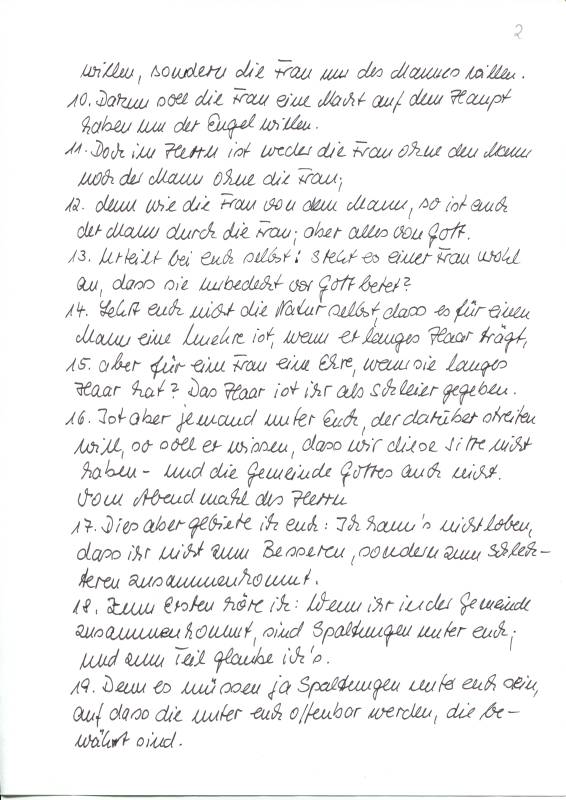 2
willen, sondern die Frau um des Mannes willen.
10. Darum soll die Frau eine Macht auf dem Haupt
haben um der Engel willen.
11. Doch im Herrn ist weder die Frau ohne den Mann
noch der Mann ohne die Frau;
12. denn wie die Frau von dem Mann, so ist auch
der Mann durch die Frau; aber alles von Gott.
13. Urteilt bei euch selbst: Steht es einer Frau wohl
an, dass sie unbedeckt vor Gott betet?
14. Lehrt euch nicht die Natur selbst, dass es für einen
Mann eine Unehre ist, wenn er langes Haar trägt,
15. aber für eine Frau eine Ehre, wenn sie langes
Haar hat? Das Haar ist ihr als Schleier gegeben.
16. Ist aber jemand unter Euch, der darüber streiten
will, so soll er wissen, dass wir diese Sitte nicht
haben - und die Gemeinde Gottes auch nicht.
Vom Abendmahl des Herrn
17. Dies aber gebiete ich euch: Ich kann's nicht loben,
dass ihr nicht zum Besseren, sondern zum Schlech-
teren zusammenkommt.
18. Zum Ersten höre ich: Wenn ihr in der Gemeinde
zusammenkommt, sind Spaltungen unter euch;
und zum Teil glaube ich's.
19. Denn es müssen ja Spaltungen unter euch sein,
auf dass die unter euch offenbar werden, die be-
währt sind.